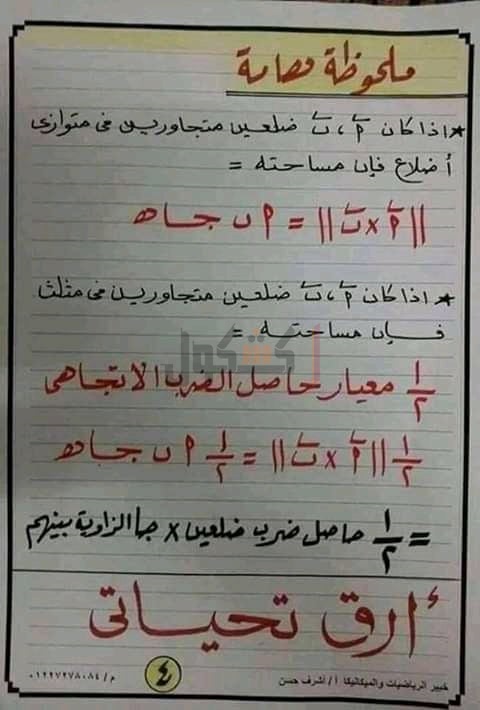 ملحوظة هامة
* اذا كان أ، ب ضلعين متجاورين فى متوازى
أضلاع فإن مساحته =
||أ × ب|| = أ ب جا هـ
* اذا كان أ، ب ضلعين متجاورين فى مثلث
فإن مساحته =
١/٢ معيار حاصل الضرب الاتجاهى
١/٢ ||أ × ب|| = ١/٢ أ ب جا هـ
= ١/٢ حاصل ضرب ضلعين × جا الزاوية بينهم
أرق تحياتى
خبير الرياضيات والميكانيكا أ/ أشرف حسن
٤
م/ ٠١٢٢٧٢٧٨٠٨٤
كشكول